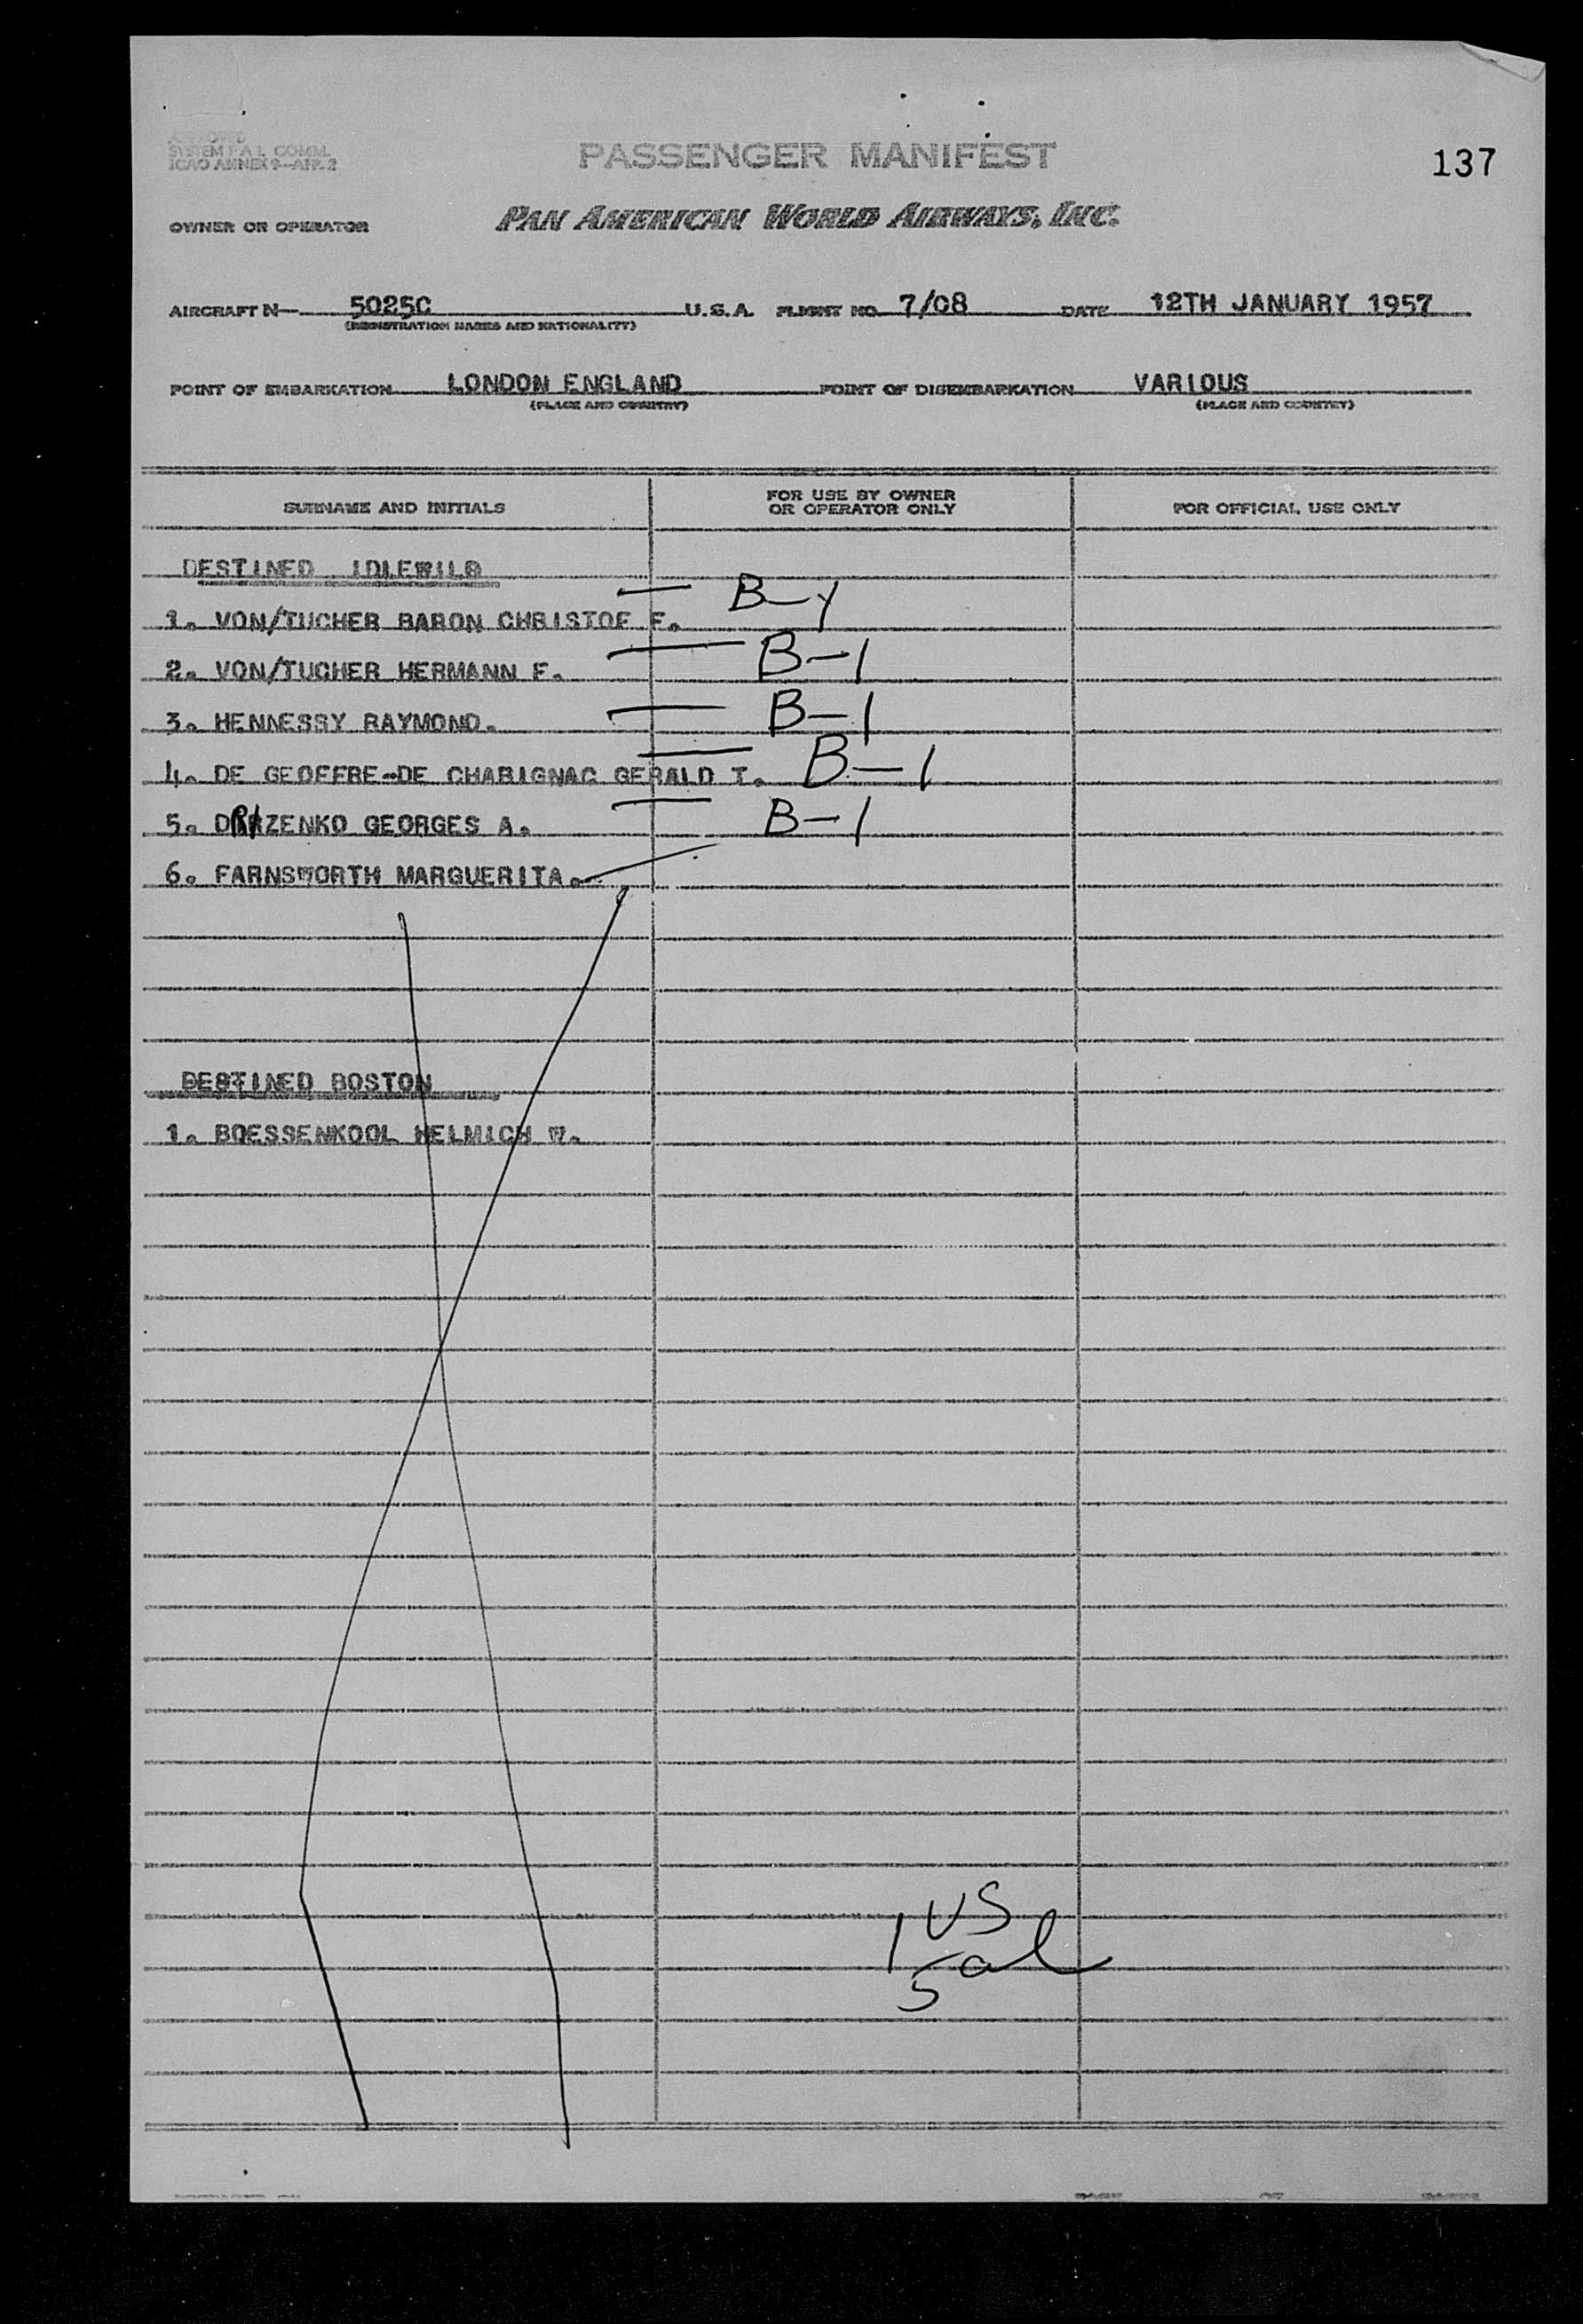 APPROVED
SYSTEM F.A.L. COMM.
ICAO ANNEX 9—APP. 2
PASSENGER MANIFEST
137
OWNER OR OPERATOR PAN AMERICAN WORLD AIRWAYS, INC.
AIRCRAFT N— 5025C U.S.A. FLIGHT NO. 7/08 DATE 12TH JANUARY 1957
(REGISTRATION MARKS AND NATIONALITY)
POINT OF EMBARKATION LONDON ENGLAND POINT OF DISEMBARKATION VARIOUS
(PLACE AND COUNTRY) (PLACE AND COUNTRY)
SURNAME AND INITIALS FOR USE BY OWNER OR OPERATOR ONLY FOR OFFICIAL USE ONLY
DESTINED IDLEWILD
1. VON/TUCHER BARON CHRISTOF F. — B-1
2. VON/TUCHER HERMANN F. — B-1
3. HENNESSY RAYMOND. — B-1
4. DE GEOFFRE-DE CHABIGNAC GERALD T. — B-1
5. DRIZENKO GEORGES A. — B-1
6. FARNSWORTH MARGUERITA.
DESTINED BOSTON
1. BOESSENKOOL HELMICH W.
1 US
5 al
PAGE OF PAGES